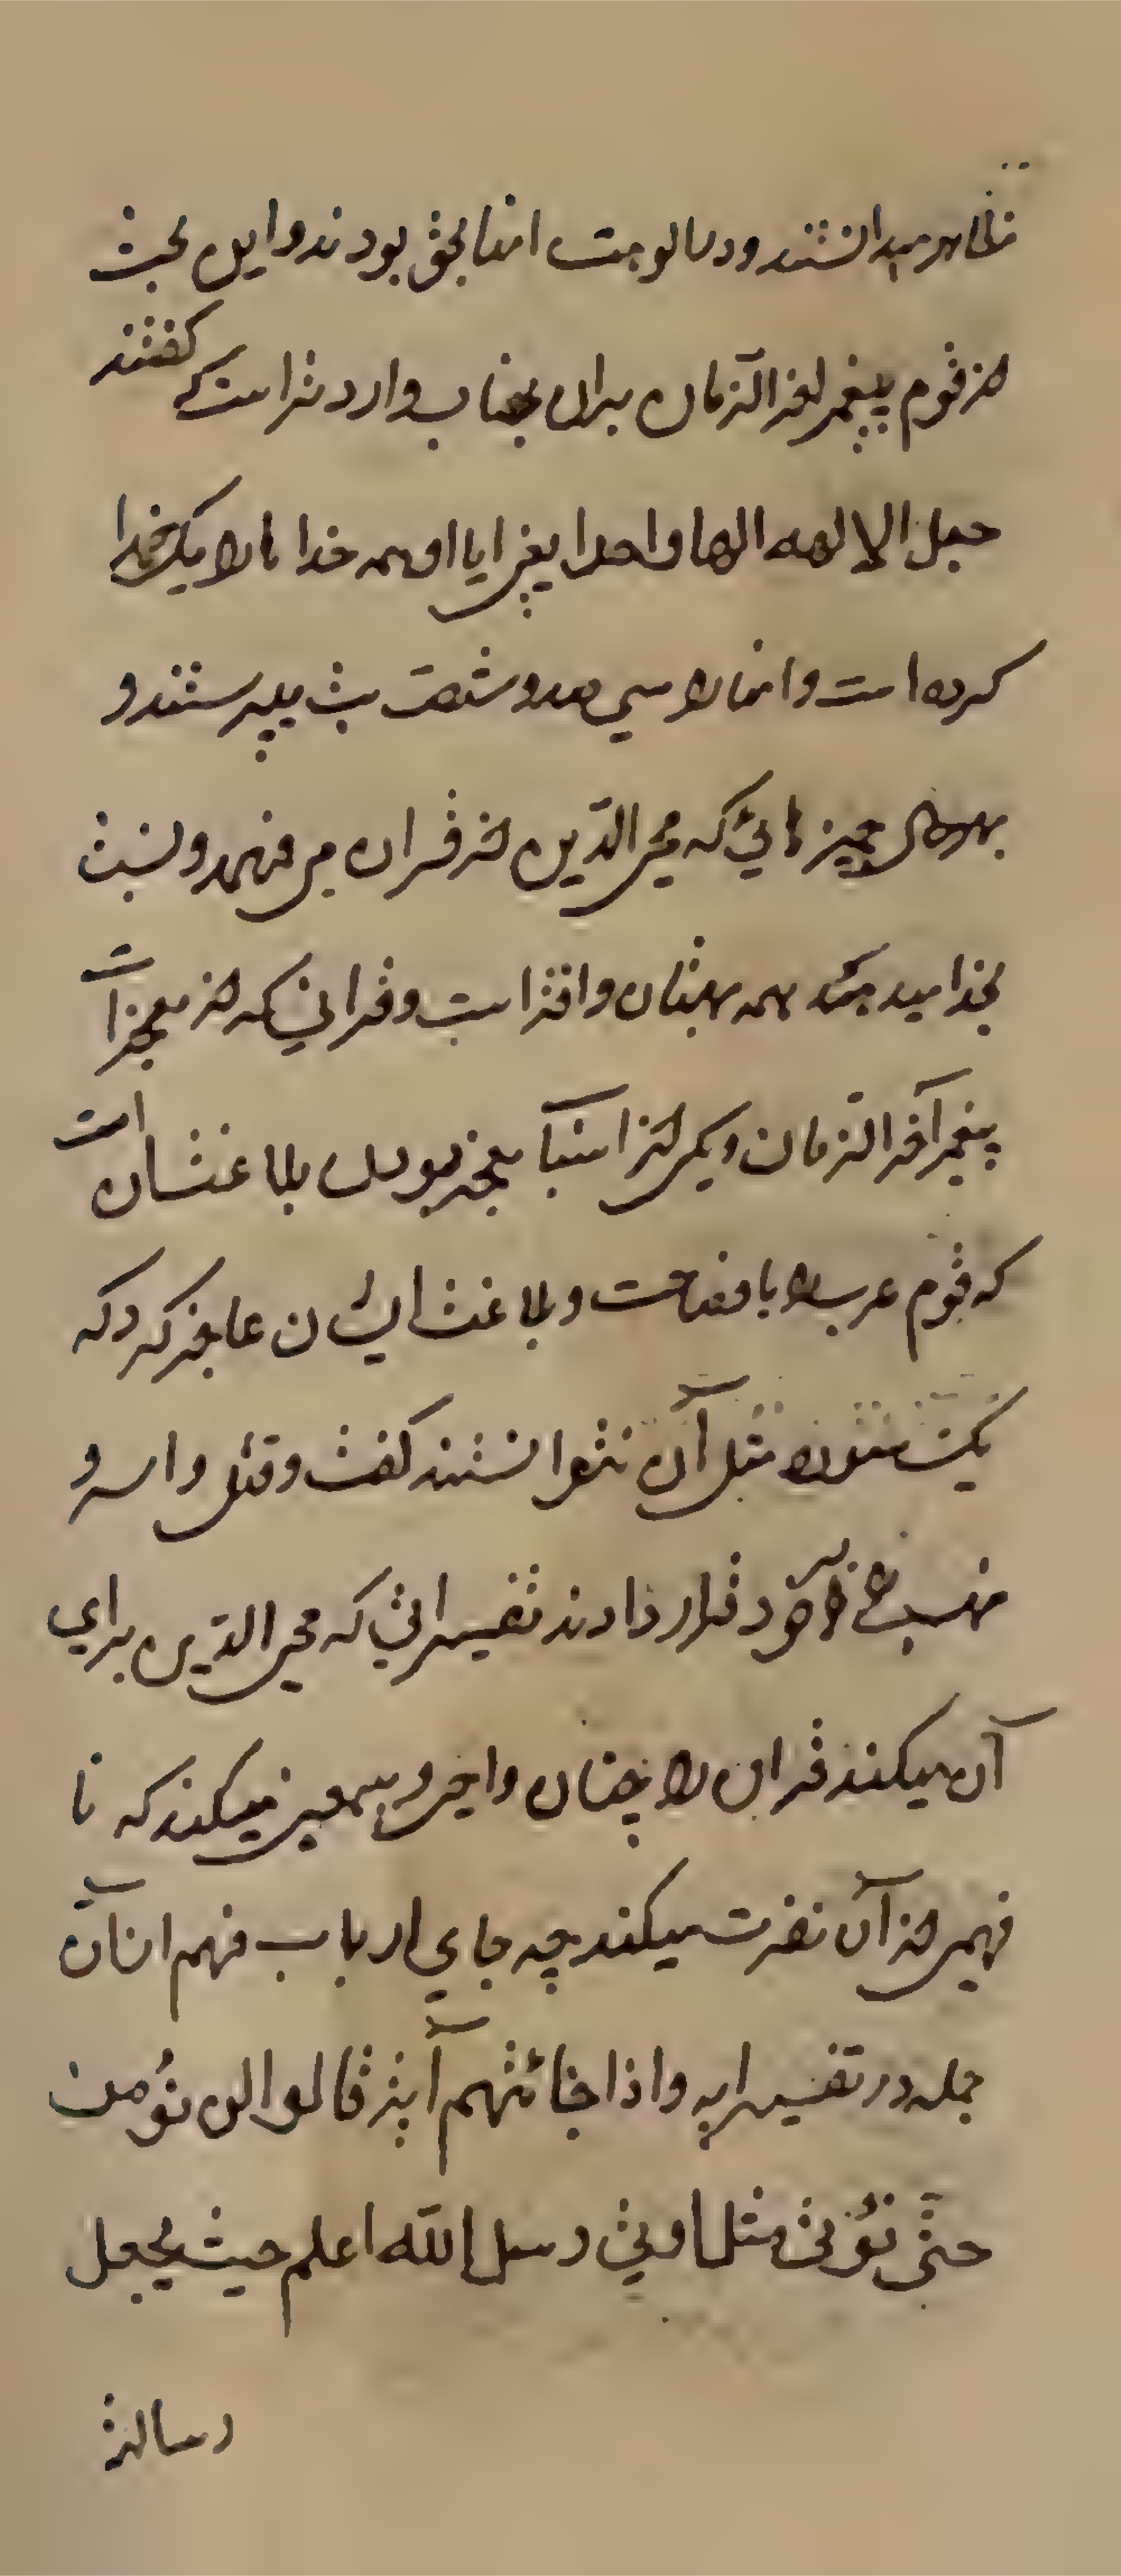 مظاهر میدانستند و در الوهیت انها بحق بودند و این بحث
از قوم پیغمبر اخر الزمان بران جناب وارد نتر است که گفتند
جعل الالهه الها واحدا یعنی ایا او همه خداها را یک خدا
کرده است و انها را سی صد و شصت بت میپرستند و
بهر حال چیزهائی که محی الدین از قران می فهمد و نسبت
بخدا میدهد همه بهتان و افترا است و قرانی که از معجزات
پیغمبر آخر الزمان و یکی از اسباب معجز بودن بلاغتشان است
که قوم عرب را با فصاحت و بلاغت ایشان عاجز کرد که
یک سوره مثل آن نتوانستند گفت و قتل و اسر و
نهب را بر خود قرار دادند تفسیراتی که محی الدین برای
آن میکند قران را چنان واهی و بیمعنی میکند که نا
فهمی از آن نفرت میکند چه جای ارباب فهم از آن
جمله در تفسیر ایه و اذا جائتهم آیة قالوا لن نؤمن
حتی نؤتی مثل ما اوتی رسل الله الله اعلم حیث یجعل
رسالته